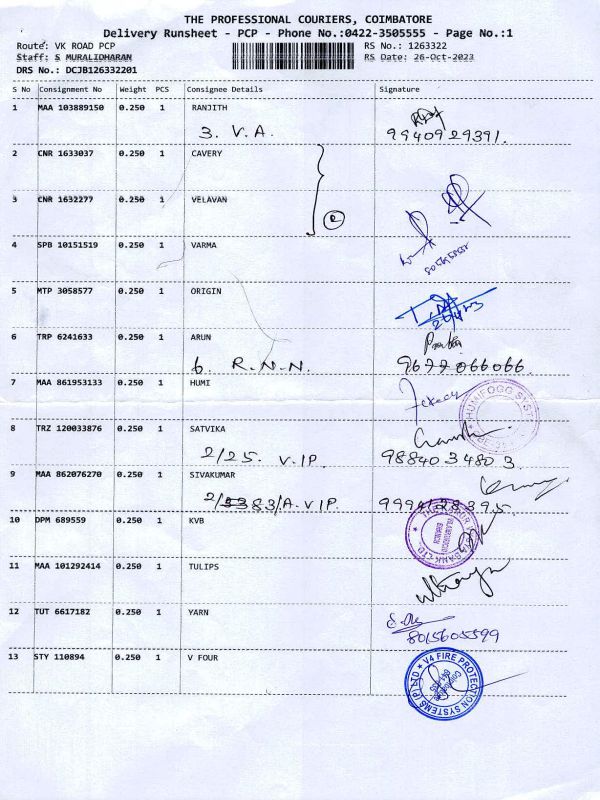 THE PROFESSIONAL COURIERS, COIMBATORE
Delivery Runsheet - PCP - Phone No.:0422-3505555 - Page No.:1
Route: VK ROAD PCP RS No.: 1263322
Staff: S MURALIDHARAN RS Date: 26-Oct-2023
DRS No.: DCJB126332201
S No Consignment No Weight PCS Consignee Details Signature
1 MAA 103889150 0.250 1 RANJITH
3. V.A. 9940929391.
2 CNR 1633037 0.250 1 CAVERY
3 CNR 1632277 0.250 1 VELAVAN
2
4 SPB 10151519 0.250 1 VARMA
5 MTP 3058577 0.250 1 ORIGIN
6 TRP 6241633 0.250 1 ARUN
6. R.N.N. 9677066066.
7 MAA 861953133 0.250 1 HUMI
HUMIFOGG SYST
8 TRZ 120033876 0.250 1 SATVIKA
2/25. V.I.P. 9884034803.
9 MAA 862076270 0.250 1 SIVAKUMAR
383/A. V.I.P. 9994128395
10 DPM 689559 0.250 1 KVB
BANK LTD.
11 MAA 101292414 0.250 1 TULIPS
12 TUT 6617182 0.250 1 YARN
8015605599
13 STY 110894 0.250 1 V FOUR
V4 FIRE PROTECTION SYSTEMS (P) LTD